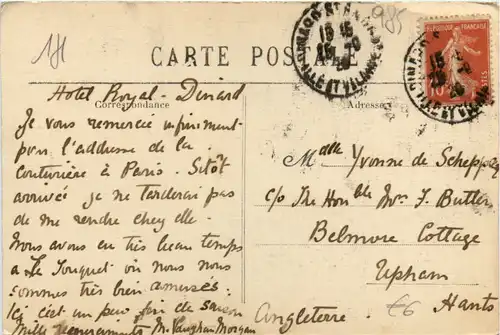 181
985
CARTE POSTALE
Correspondance
Adresse
Hotel Royal - Dinard
Je vous remercie infiniment
pour l'addresse de la
couturière à Paris. Sitôt
arrivée je ne tarderai pas
de me rendre chez elle.
Nous avons eu très beau temps
a Le Touquet où nous nous
sommes très bien amusés.
Ici c'est un peu fin de saison
Mille remerciments M. Vaughan Morgan
Mdlle Yvonne de Schepper
c/o The Honble Mrs F. Butler
Belmore Cottage
Upham
Hants
Angleterre.
€6
REPUBLIQUE FRANÇAISE
10
DINARD ST ENOGAT
ILLE ET VILAINE